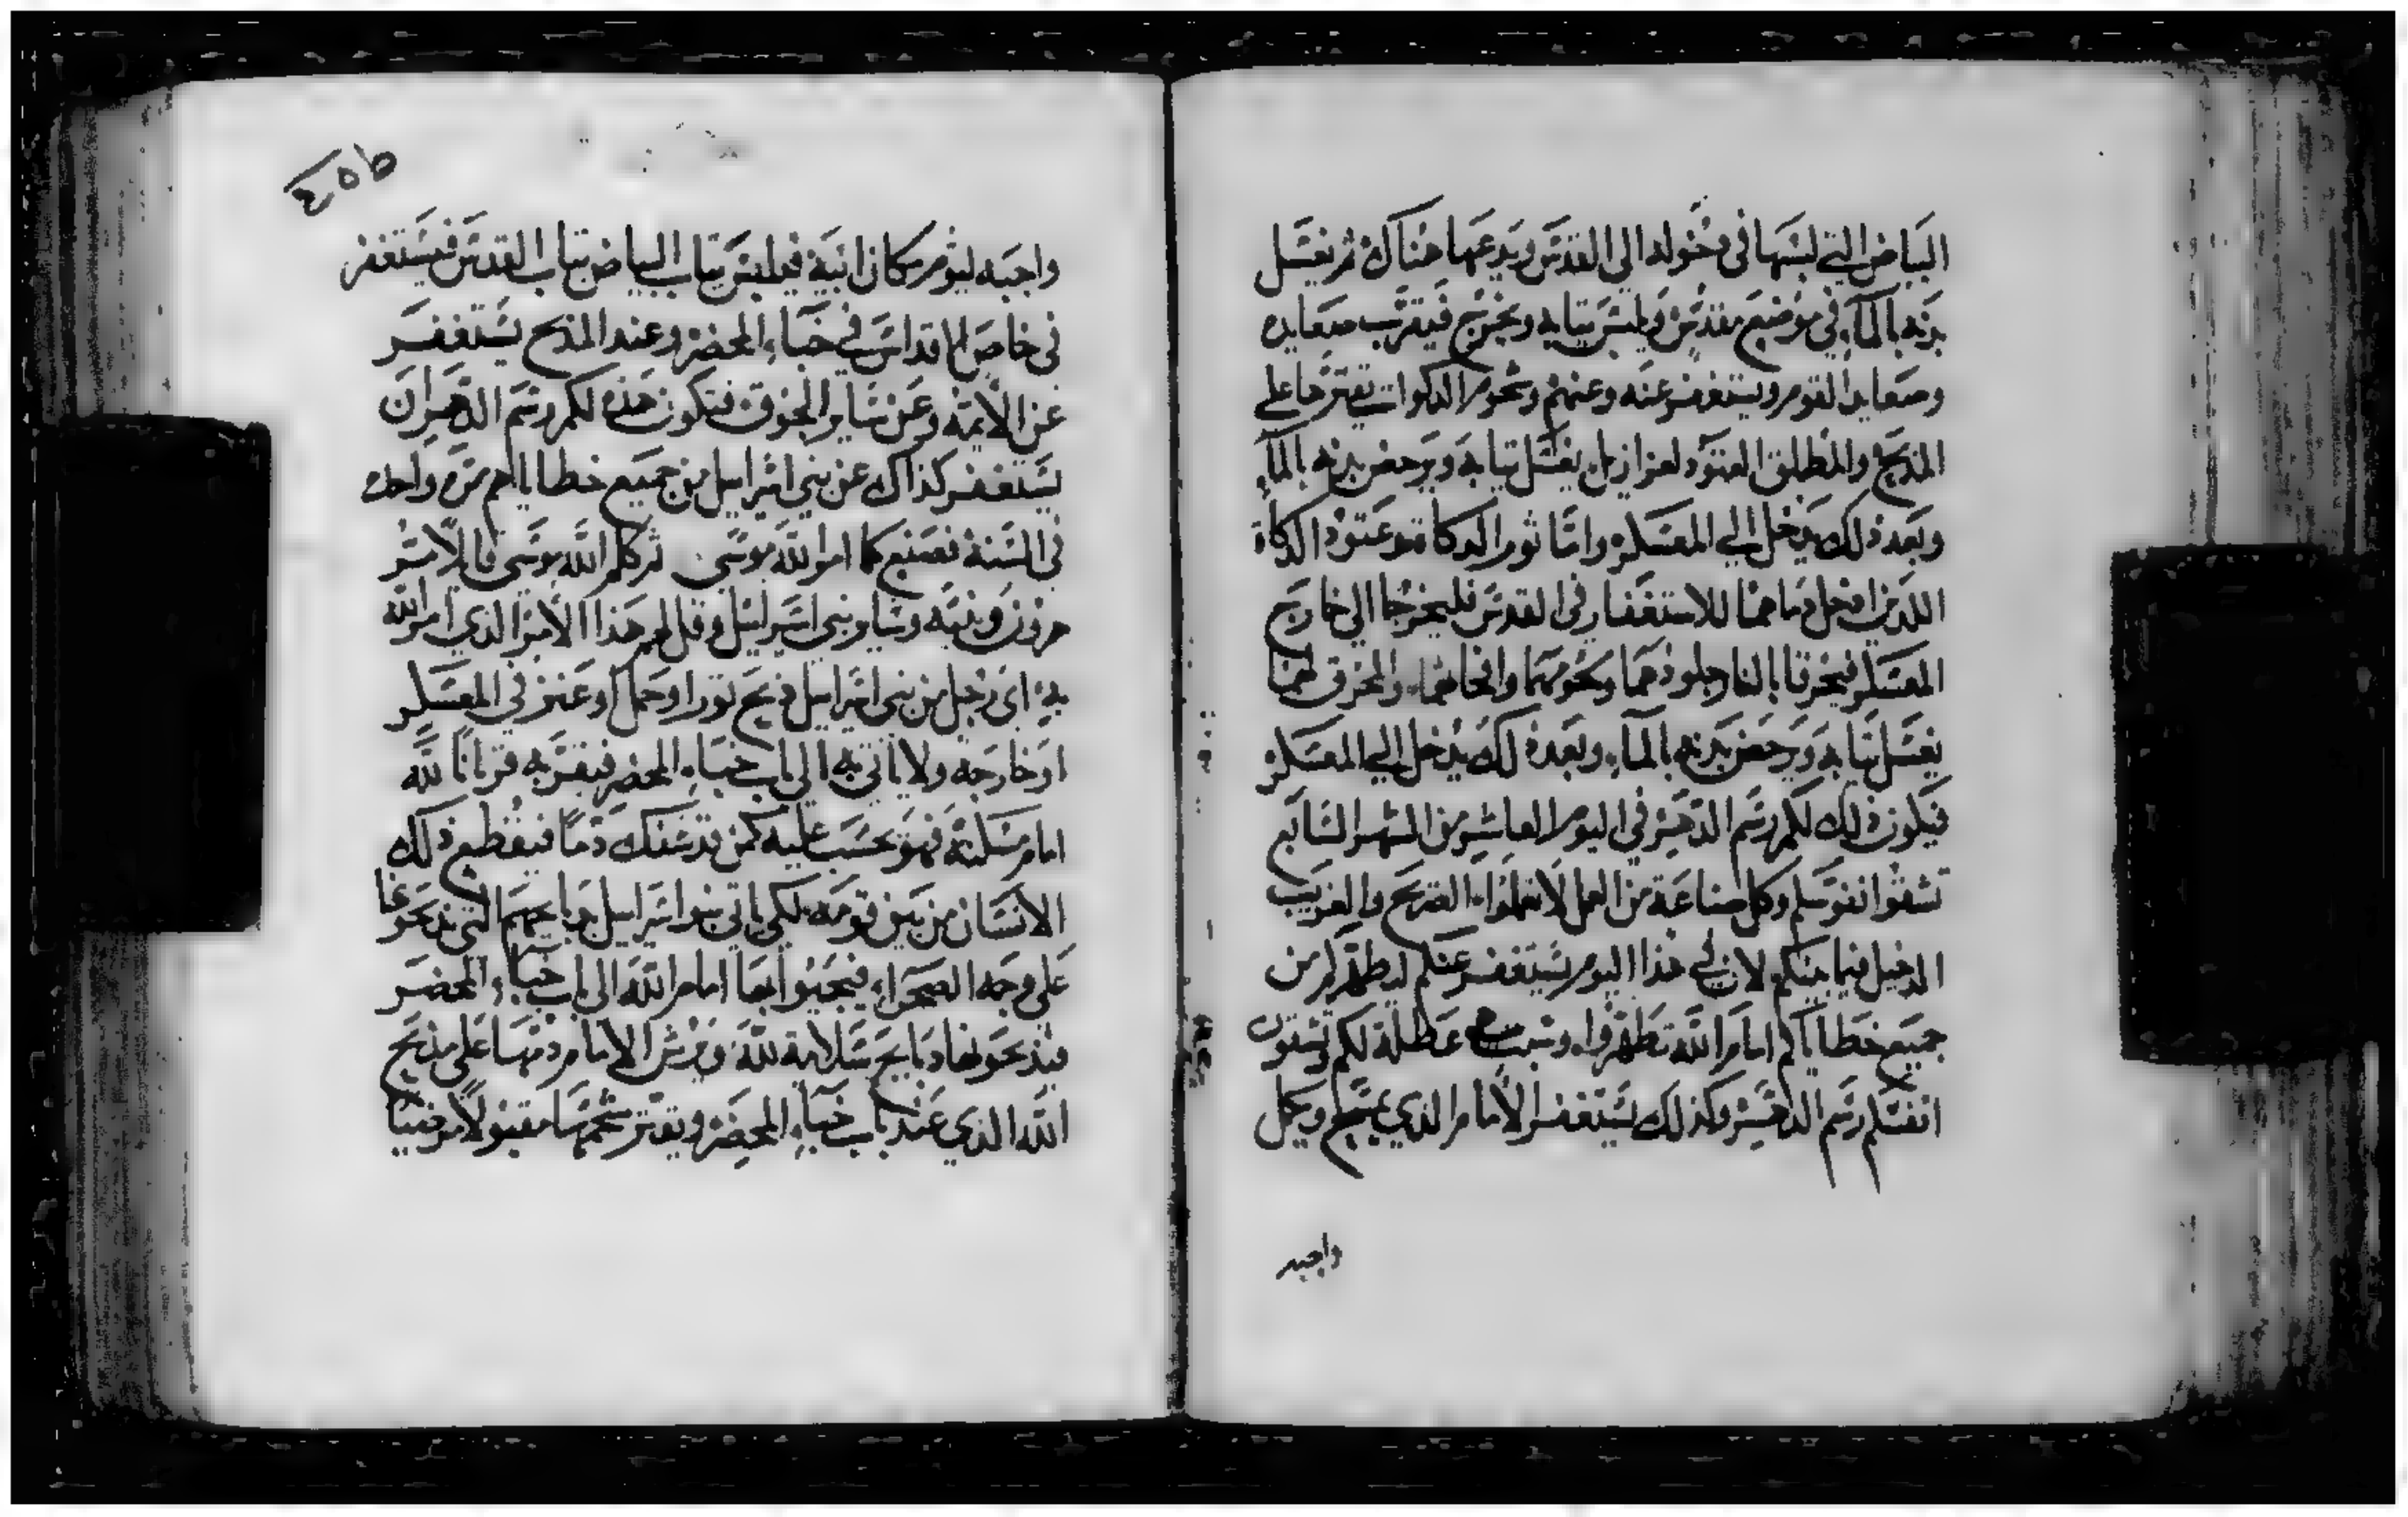 البياض التي لبسها في دخوله الي القدس ويدعها هناك ثم يغسل
بدنه بالماء في موضع مقدس ويلبس ثيابه ويخرج فيقرب صعايده
وصعايد القوم ويستغفر عنه وعنهم وشحوم الدكوات يقترها على
المذبح والمطلق العتود لعزازيل يغسل ثيابه ويرحض بدنه بالماء
وبعد ذلك يدخل الي المعسكر واما ثور الدكاة وعتود الدكاة
اللذين ادخل دماهما للاستغفار في القدس فليخرجا الي خارج
المعسكر فيحرقا بالنار جلودهما ولحومهما وانجاهما والمحرق لهما
يغسل ثيابه ويرحض بدنه بالماء وبعد ذلك يدخل الي المعسكر
فيكون ذلك لكم رسم الدهر في اليوم العاشر من الشهر السابع
تشقوا انفوسكم وكل صناعة من العمل لا تعملوا الصريح والغريب
الدخيل فيما بينكم لان في هذا اليوم يستغفر عنكم ليطهركم من
جميع خطاياكم امام الله تطهروا وسبت عطلة لكم وتشقون
انفسكم رسم الدهر وكذلك يستغفر الامام الذي يمسح ويكمل
واجبه
٤٥٥
واجبه ليوم مكان ابيه فيلبس ثياب البياض ثياب القدس فيستغفر
في خاص الاقداس في خباء المحضر وعند المذبح يستغفر
عن الايمه وعن ساير الجوق فتكون هذه لكم رسم الدهر ان
يستغفر كذاك عن بني اسرايل من جميع خطاياهم مرة واحدة
في السنة فصنع كما امر الله موسى ثم كلم الله موسي قايلا مر
هرون وبنيه وساير بني اسرايل وقل لهم هذا الامر الذي امر الله
به اي رجل من بني اسرايل ذبح ثورا وحمل او عنز في المعسكر
او خارجه ولا ياتي به الي باب خباء المحضر فيقربه قربانا لله
امام مسكنه فهو يحسب عليه كمن قد سفك دما فيقطع ذلك
الانسان من بين قومه لكي ياتي بنوا اسرايل بدبايحهم التي يذبحونها
على وجه الصحراء فيجيوا بها امام الله الى باب خباء المحضر
فيذبحونها دبايح سلامة لله ويرش الامام دمها على مذبح
الله الذي عند باب خباء المحضر ويقتر شحمها مقبولا مرضيا